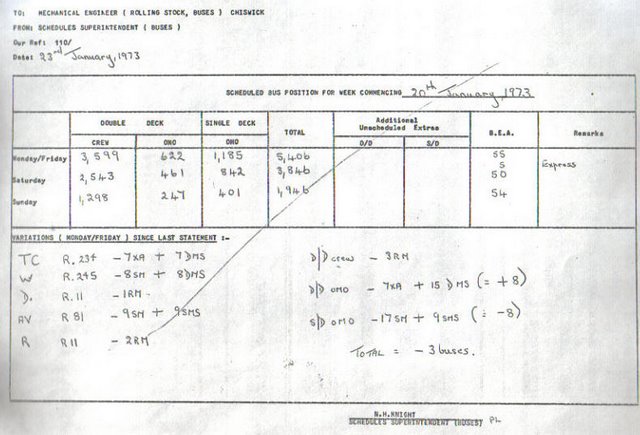 TO: MECHANICAL ENGINEER ( ROLLING STOCK, BUSES ) CHISWICK
FROM: SCHEDULES SUPERINTENDENT ( BUSES )
Our Ref: 110/
Date: 23rd January, 1973
SCHEDULED BUS POSITION FOR WEEK COMMENCING 20th January, 1973
DOUBLE DECK SINGLE DECK TOTAL Additional Unscheduled Extras B.E.A. Remarks
CREW OMO OMO D/D S/D
Monday/Friday 3,599 622 1,185 5,406 55
5 Express
Saturday 2,543 461 842 3,846 50
Sunday 1,298 247 401 1,946 54
VARIATIONS ( MONDAY/FRIDAY ) SINCE LAST STATEMENT :-
TC R.234 - 7XA + 7DMS D/D crew - 3RM
W R.245 - 8SM + 8DMS D/D OMO - 7XA + 15 DMS (= +8)
D. R.11 - 1RM
AV R 81 - 9SM + 9SMS S/D OMO - 17SM + 9SMS (= -8)
R R11 - 2RM TOTAL = - 3 buses.
N.H.KNIGHT
SCHEDULES SUPERINTENDENT (BUSES) PL